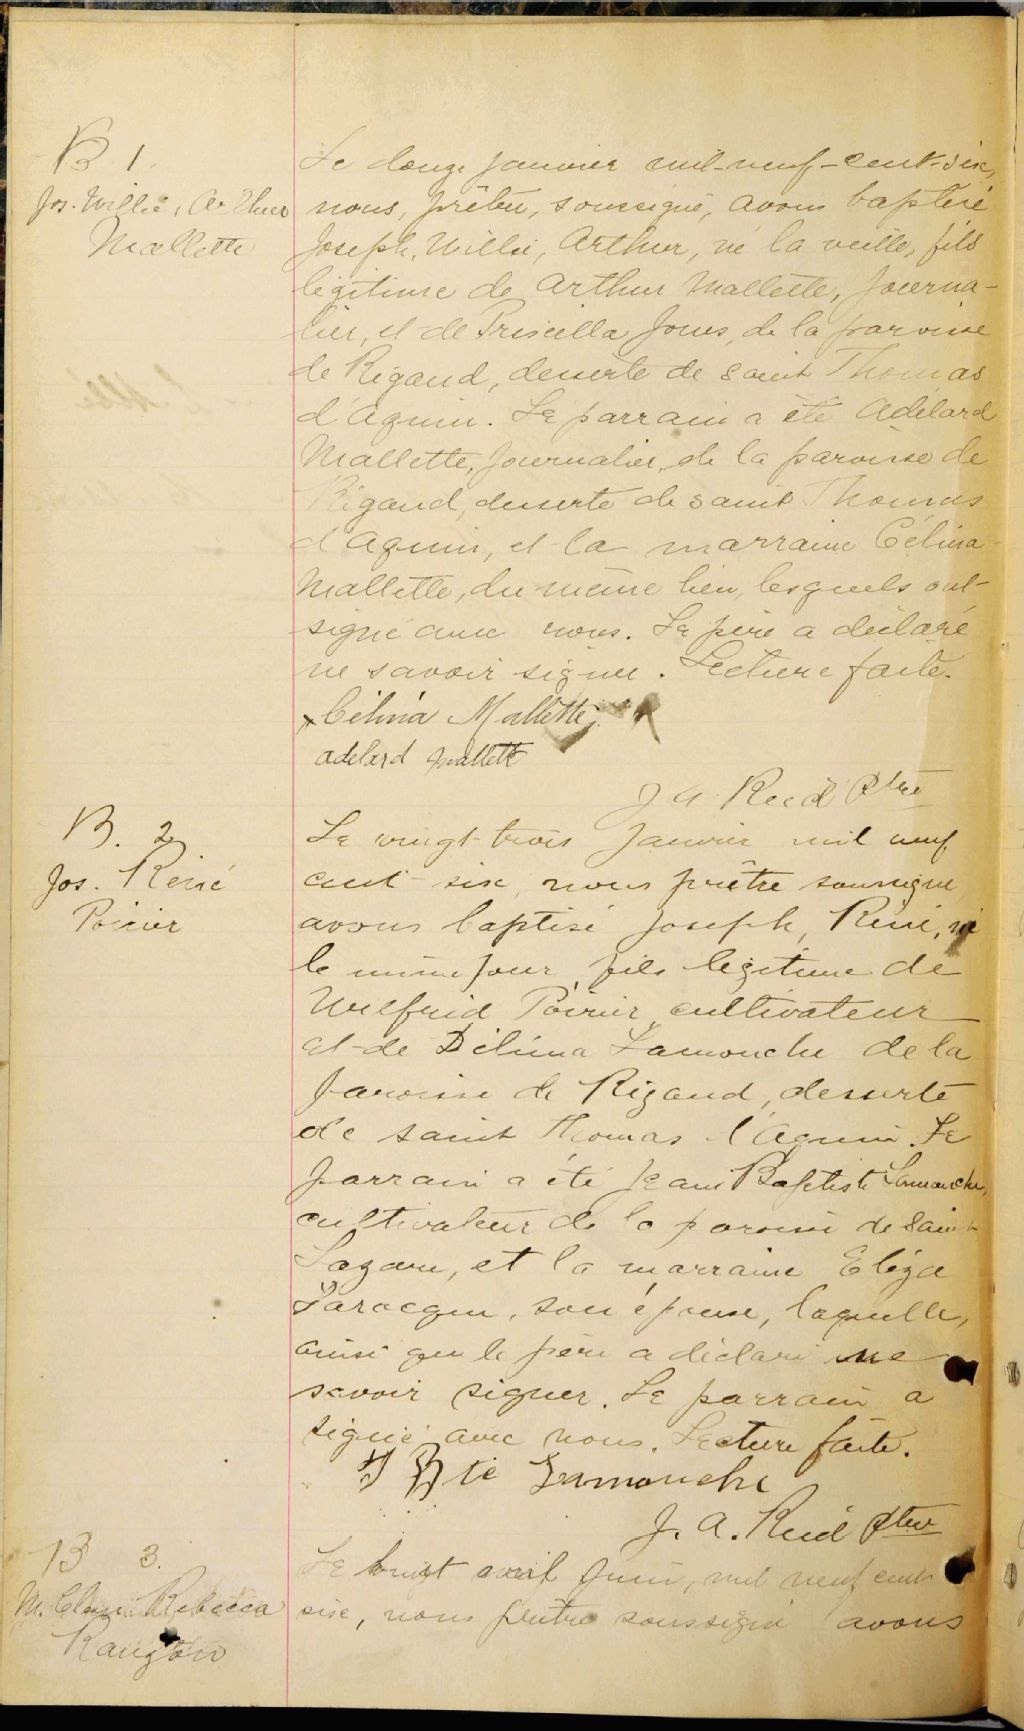 B 1.
Jos. Willie, Arthur
Mallette
Le douze janvier mil-neuf-cent-six,
nous, prêtre, soussigné, avons baptisé
Joseph, Willie, Arthur, né la veille, fils
légitime de Arthur Mallette, journa-
lier, et de Priscilla Jones, de la paroisse
de Rigaud, desserte de saint Thomas
d'Aquin. Le parrain a été Adélard
Mallette, journalier, de la paroisse de
Rigaud, desserte de saint Thomas
d'Aquin, et la marraine Célina
Mallette, du même lieu, lesquels ont
signé avec nous. Le père a déclaré
ne savoir signer. Lecture faite.
Célina Mallette
adelard mallette
J A Reid Ptre
B. 2
Jos. René
Poirier
Le vingt-trois janvier mil neuf
cent six, nous prêtre soussigné
avons baptisé Joseph, René, né
le même jour, fils légitime de
Wilfrid Poirier, cultivateur
et de Délima Lamouche de la
paroisse de Rigaud, desserte
de saint Thomas d'Aquin. Le
parrain a été Jean Baptiste Lamouche,
cultivateur de la paroisse de Saint
Lazare, et la marraine Eliza
Larocque, son épouse, laquelle,
ainsi que le père a déclaré ne
savoir signer. Le parrain a
signé avec nous. Lecture faite.
J Bte Lamouche
J. A. Reid Ptre
B 3.
M. Rebecca
Le avril mil neuf cent
six, nous prêtre soussigné avons